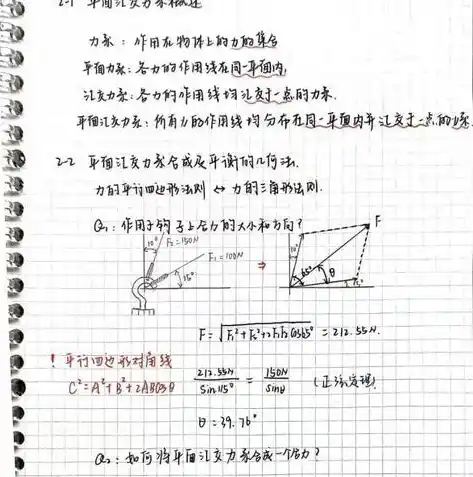 2-1 平面汇交力系概述
力系：作用在物体上的力的集合
平面力系：各力的作用线在同一平面内.
汇交力系：各力的作用线均汇交于一点的力系.
平面汇交力系：所有力的作用线均分布在同一平面内并汇交于一点的力系
2-2 平面汇交力系合成及平衡的几何法.
力的平行四边形法则 ↔ 力的三角形法则.
Q₁：作用于钩子上合力的大小和方向？
10° F₂=150N
F₁=100N
15°
⇒
F
10°
65° θ
15°
F=√F₁²+F₂²+2F₁F₂cos65° = 212.55N.
! 平行四边形对角线
C²=A²+B²+2ABcosθ
212.55N/sin115° = 150N/sinθ (正弦定理)
θ=39.76°
Q₂：如何将平面汇交力系合成一个合力？